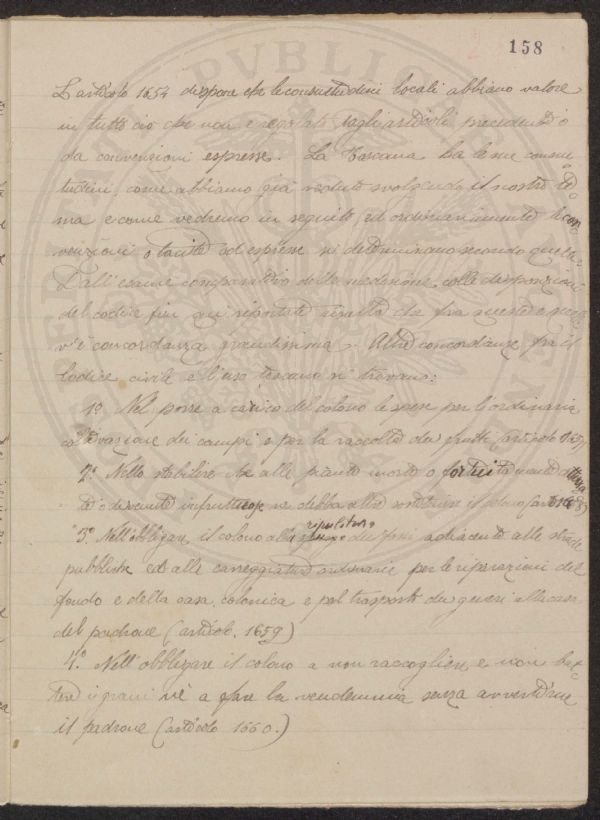 158
L'articolo 1654 dispone che le consuetudini locali abbiano valore
in tutto ciò che non è regolato dagli articoli precedenti o
da convenzioni espresse. La Toscana ha le sue consue
tudini, come abbiamo già veduto svolgendo il nostro te=
ma e come vedremo in seguito, ed ordinariamente le con
venzioni o tacite od espresse si determinano secondo quelle.
Dall'esame comparativo delle medesime colle disposizioni
del codice fin qui riportate risulta che fra queste e quelle
v'è concordanza grandissima. Altre concordanze fra il
Codice civile e l'uso toscano si trovano:
1º Nel porre a carico del colono le spese per l'ordinaria
coltivazione dei campi e per la raccolta dei frutti (articolo
2º. Nello stabilire che alle piante morte o fortuitamente atterra
te o divenute infruttuose ne debba altre sostituire il colono
3º Nell'obbligare il colono alla ripulitura dei fossi adiacenti alle strade
pubbliche ed alle carreggiature ordinarie per le riparazioni del
fondo e della casa colonica e pel trasporto dei generi alla casa
del padrone (articolo. 1659)
4.º Nell'obbligare il colono a non raccogliere e non bat=
tere i grani nè a fare la vendemmia senza avvertirne
il padrone (articolo 1660.)